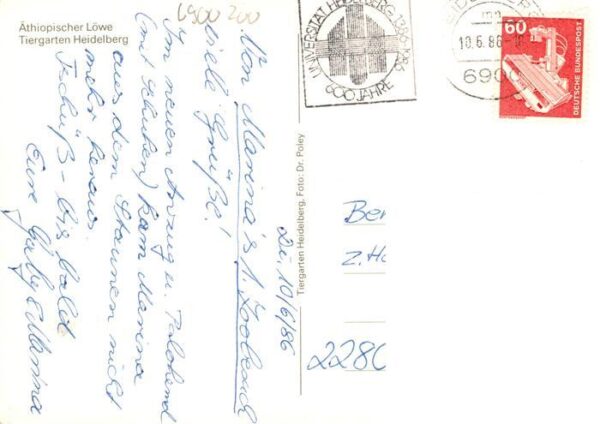 Äthiopischer Löwe
Tiergarten Heidelberg
6900 200
UNIVERSITÄT HEIDELBERG 1386-1986
600 JAHRE
10.6.86
6900
60
DEUTSCHE BUNDESPOST
Di, 10/6/86
Von Marina's 1. Zoobesuch
viele Grüße!
Im neuen Anzug u. Palohemd
(mit Schuhen) kam Marina
aus dem Staunen nicht
mehr heraus.
Tschüß - bis bald
Eure Gaby & Marina
Tiergarten Heidelberg, Foto: Dr. Poley
Ber
z. H
2280